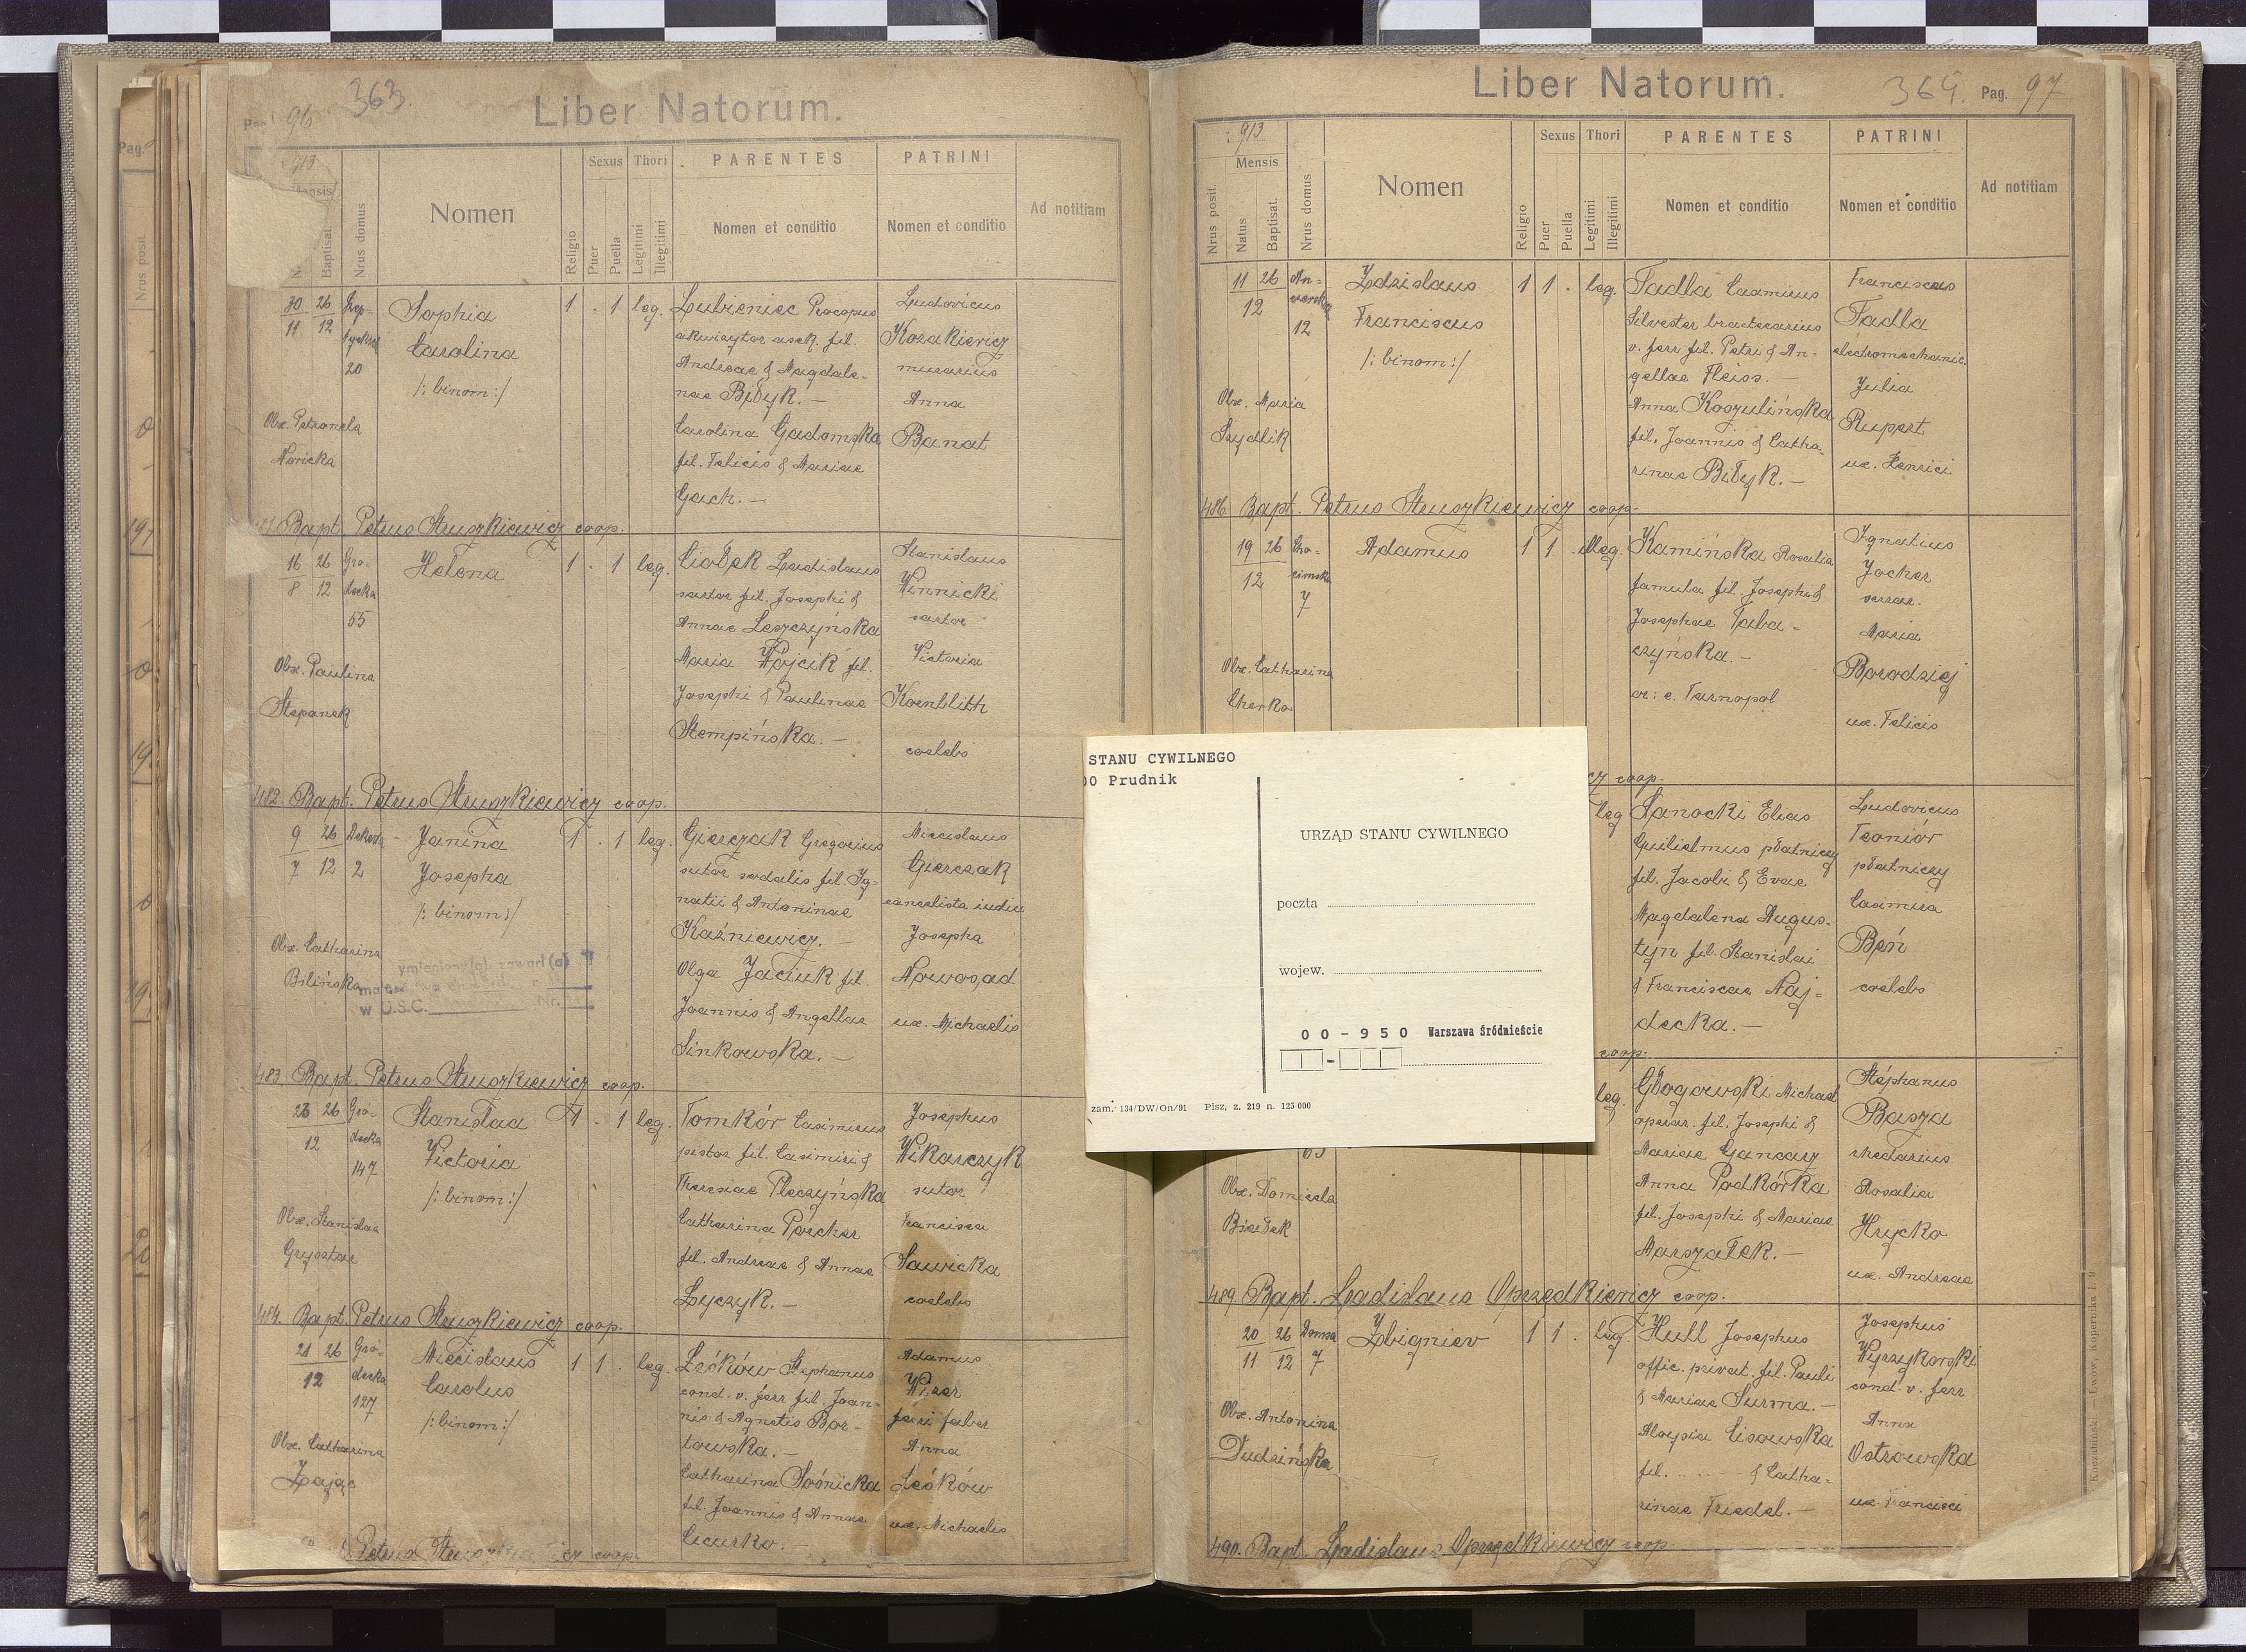 Pag. 96 363.
Liber Natorum.
913
Mensis
Baptisat.
Nrus domus
Nomen
Religio
Sexus
Puer
Puella
Thori
Legitimi
Illegitimi
PARENTES
Nomen et conditio
PATRINI
Nomen et conditio
Ad notitiam
30 26
11 12
20
Sophia
Carolina
/: binom :/
1 . 1 leg.
Obx. Petronela
Nowicka
Lubieniec Procopius
akwizytor asek. fil.
Andreae & Magdale-
nae Biłyk. —
Carolina Gadomska
fil. Felicis & Mariae
Gach. —
Ludovicus
Kozakiewicz
murarius
Anna
Banat
481. Bapt. Petrus Struszkiewicz coop.
16 26 Gró-
8 12 decka
55
Helena
1 . 1 leg.
Obx. Paulina
Stepanek
Ciołek Ladislaus
sartor fil. Josephi &
Annae Leszczyńska
Maria Wojcik fil.
Josephi & Paulinae
Stempińska. —
Stanislaus
Winnicki
sartor
Victoria
Kornblith
coelebs
482. Bapt. Petrus Struszkiewicz coop.
9 26 Dekerta
7 12 2
Janina
Josepha
/: binom :/
1 . 1 leg.
Obx. Catharina
Bilińska
ymieniony(a) zawarł(a)
w U.S.C. Nr.
Gierczak Gregorius
sutor sodalis fil. Ig-
natii & Antoninae
Kaźniewicz. —
Olga Jaciuk fil.
Joannis & Angellae
Sinkowska. —
Miecislaus
Gierczak
cancelista iudic
Josepha
Nowosad
ux. Michaelis
483. Bapt. Petrus Struszkiewicz coop.
26 26 Gró-
12 decka
147
Stanisłaa
Victoria
/: binom :/
1 . 1 leg.
Obx. Stanislaa
Grysztar
Tomkór Casimirus
pistor fil. Casimiri &
Theresiae Pleczyńska
Catharina Porcher
fil. Andreae & Annae
Łyczyk. —
Josephus
Wikarczyk
sutor
Francisca
Sawicka
coelebs
484. Bapt. Petrus Struszkiewicz coop.
21 26 Gró-
12 decka
127
Miecislaus
Carolus
/: binom :/
1 1 . leg.
Obx. Catharina
Zając
Leśków Stephanus
cond. v. ferr fil. Joan-
nis & Agnetis Bor-
towska. —
Catharina Sośnicka
fil. Joannis & Annae
Ciurko. —
Adamus
Wizer
ferri faber
Anna
Leśków
ux. Michaelis
Petrus Struszkiewicz coop.
Liber Natorum.
364. Pag. 97
913
Nrus posit.
Mensis
Natus
Baptisat.
Nrus domus
Nomen
Religio
Sexus
Puer
Puella
Thori
Legitimi
Illegitimi
PARENTES
Nomen et conditio
PATRINI
Nomen et conditio
Ad notitiam
11 26
12
12
Zdzislaus
Franciscus
/: binom :/
1 1 . leg.
Obx. Maria
Szydlik
Tadla Casimirus
Silvester bractearius
v. ferr fil. Petri & An-
gellae Fleiss. —
Anna Koszulińska
fil. Joannis & Catha-
rinae Biłyk. —
Franciscus
Tadla
electromechanic.
Julia
Ruppert
ux. Henrici
486. Bapt. Petrus Struszkiewicz coop.
19 26 Cho-
12 cimska
7
Adamus
1 1 . Illeg.
Obx. Catharina
Cherka
Kamińska Rosalia
famula fil. Josephi &
Josephae Taba-
czyńska. —
or: e. Tarnopol
Ignatius
Jocher
serrar.
Maria
Borodziej
ux. Felicis
cz coop.
leg
Sanocki Elias
Gulielmus płatniczy
fil. Jacobi & Evae
Magdalena Augus-
tyn fil. Stanislai
& Franciscae Naj-
decka. —
Ludovicus
Teoniór
płatniczy
Casimira
Bęń
coelebs
coop.
STANU CYWILNEGO
00 Prudnik
URZĄD STANU CYWILNEGO
poczta
wojew.
00-950 Warszawa Śródmieście
zam. 134/DW/On/91 Pisz, z. 219 n. 125 000
leg.
Obx. Domicela
Białek
Głogowski Michael
operar. fil. Josephi &
Mariae Gancarz
Anna Podkórka
fil. Josephi & Mariae
Marszałek. —
Stéphanus
Basza
rhedarius
Rosalia
Hrycko
ux. Andreae
489. Bapt. Ladislaus Oprzędkiewicz coop.
20 26 Domsa
11 12 7
Zbigniev
1 1 . leg.
Obx. Antonina
Dudzińska
Hull Josephus
offic. privat. fil. Pauli
& Mariae Surma. —
Aloysia Lisowska
fil. . . . . . & Catha-
rinae Friedel. —
Josephus
Wyrzykowski
cond. v. ferr
Anna
Ostrowska
ux. Francisci
490. Bapt. Ladislaus Oprzędkiewicz coop